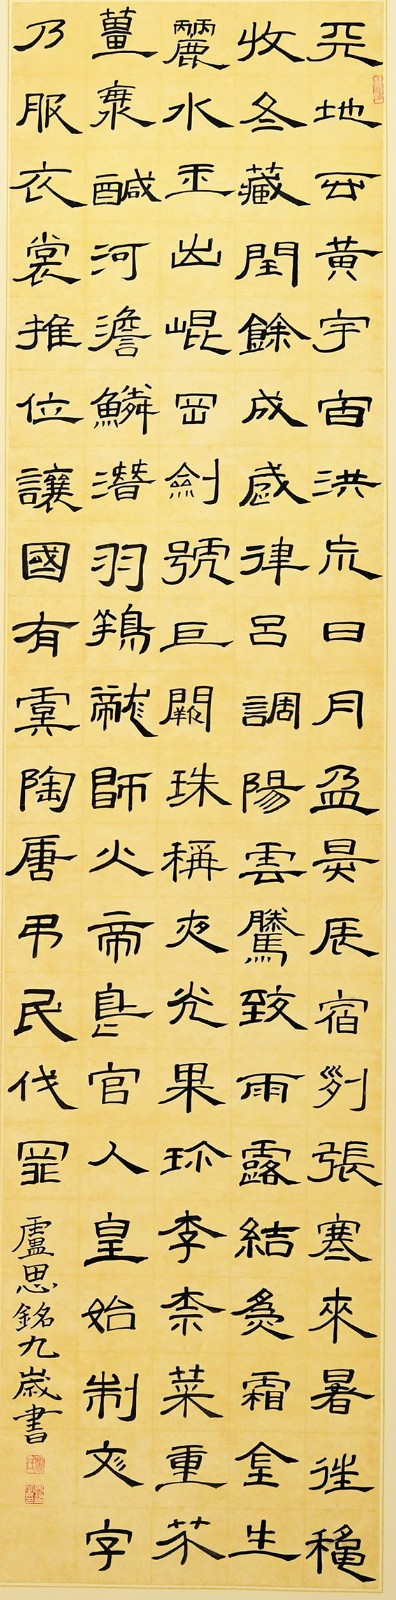 天地玄黃宇宙洪巟日月盈昃辰宿列張寒來暑往穐
收冬藏閏餘成歲律呂調陽雲騰致雨露結為霜金生
麗水玉出崐岡劍號巨闕珠稱夜光果珍李柰菜重芥
薑海鹹河澹鱗潛羽翔龍師火帝鳥官人皇始制文字
乃服衣裳推位讓國有虞陶唐弔民伐罪
盧思銘九歲書